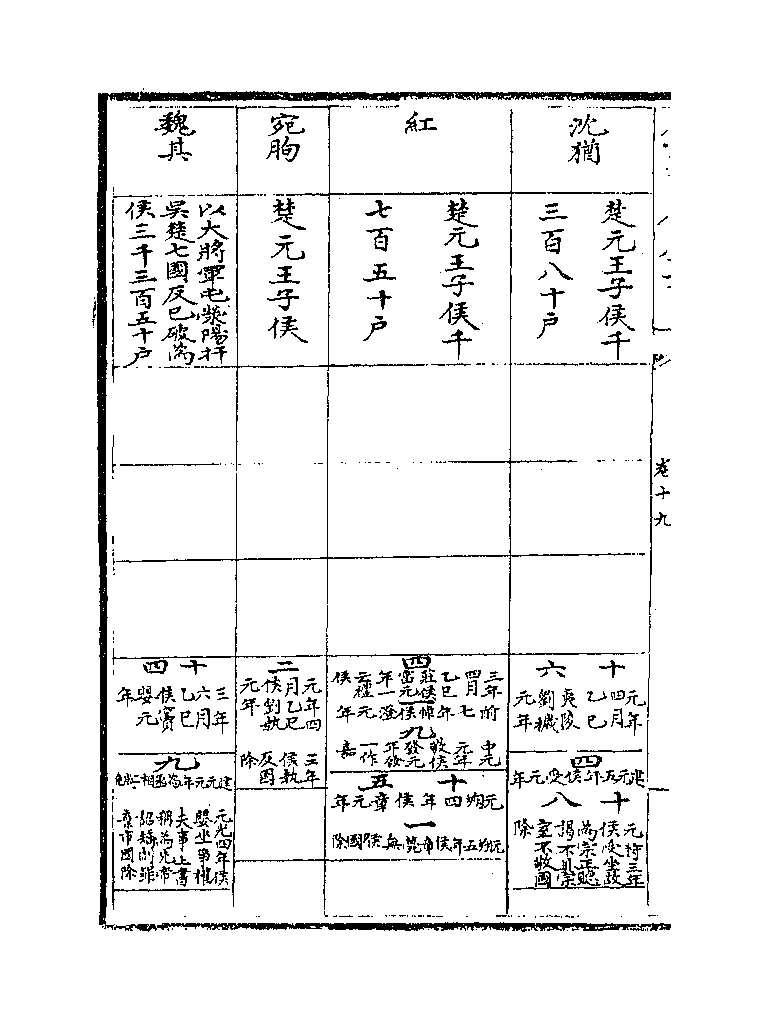 卷十九
沈猶
楚元王子侯千
三百八十户
十六
元年
四月
乙巳
夷陵
劉穢
元年
四
建元五年侯受元年
十八
元狩三年
侯受坐故
為宗正聽
謁不具宗
室不敬國
除
紅
楚元王子侯千
七百五十户
四
三年
四月
乙巳
莊侯
富元
年一
云禮
侯
一
前七年悼侯澄元年
九
中元
元年
敬侯
發元
年發
一作
嘉
十五
元朔四年侯章元年
一
元朔五年侯章薨無後國除
宛朐
楚元王子侯
二
元年四
月乙巳
侯劉埶
元年
三年
侯埶
反國
除
魏其
以大將軍屯滎陽扞
吳楚七國反已破為
侯三千三百五十户
十四
三年
六月
乙巳
侯竇
嬰元
年
九
建元元年為丞相二歲免
元光四年侯
嬰坐爭灌
夫事上書
稱為先帝
詔矯制罪
棄市國除